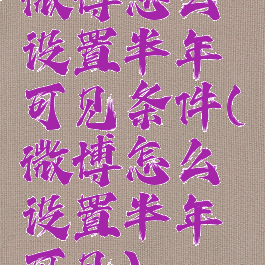 微博怎么
设置半年
可见条件(
微博怎么
设置半年
可见)